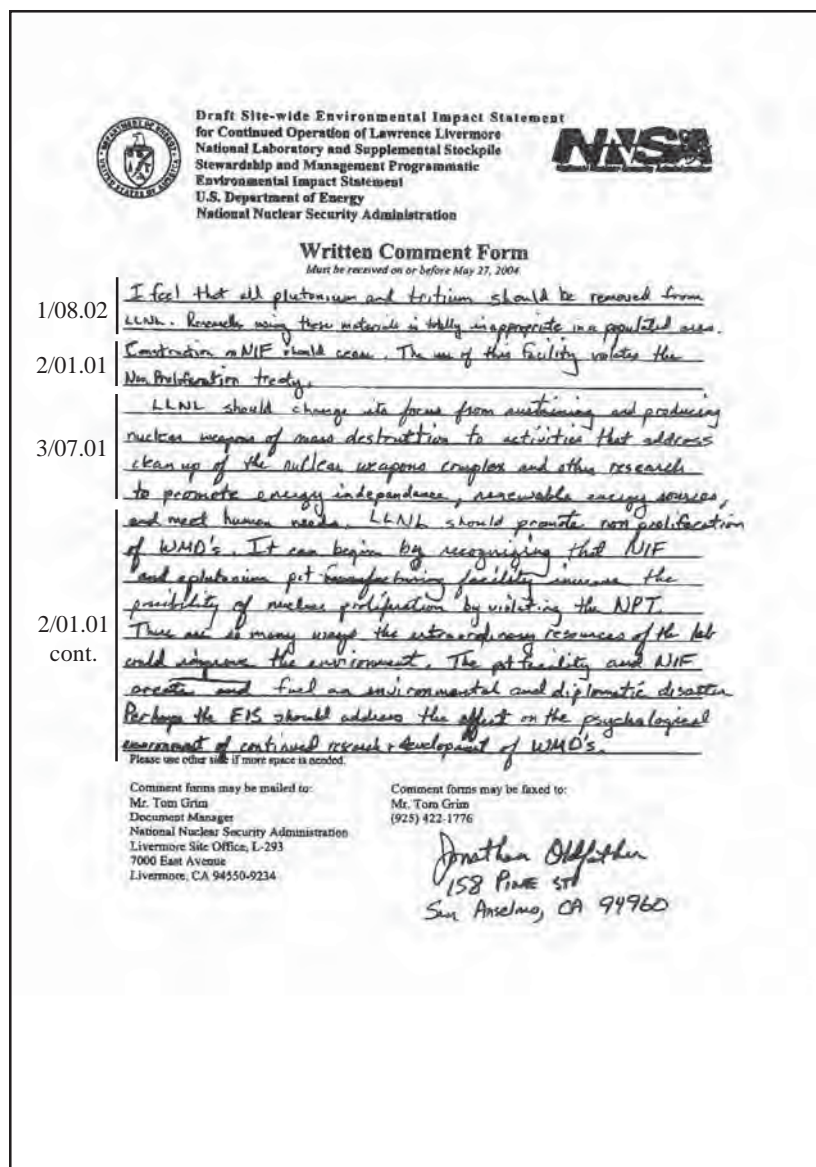 Draft Site-wide Environmental Impact Statement
for Continued Operation of Lawrence Livermore
National Laboratory and Supplemental Stockpile
Stewardship and Management Programmatic
Environmental Impact Statement
U.S. Department of Energy
National Nuclear Security Administration
NNSA
Written Comment Form
Must be received on or before May 27, 2004
1/08.02
I feel that all plutonium and tritium should be removed from
LLNL. Research using these materials is totally inappropriate in a populated area.
2/01.01
Construction on NIF should cease. The use of this facility violates the
Non Proliferation treaty.
3/07.01
LLNL should change its focus from sustaining and producing
nuclear weapons of mass destruction to activities that address
clean up of the nuclear weapons complex and other research
to promote energy independance, renewable energy sources,
2/01.01
cont.
and meet human needs. LLNL should promote non proliferation
of WMD's. It can begin by recognizing that NIF
and a plutonium pit manufacturing facility increase the
possibility of nuclear proliferation by violating the NPT.
There are so many ways the extraordinary resources of the lab
could improve the environment. The pit facility and NIF
create and fuel an environmental and diplomatic disaster
Perhaps the EIS should address the effect on the psychological
environment of continued research + development of WMD's.
Please use other side if more space is needed.
Comment forms may be mailed to:
Mr. Tom Grim
Document Manager
National Nuclear Security Administration
Livermore Site Office, L-293
7000 East Avenue
Livermore, CA 94550-9234
Comment forms may be faxed to:
Mr. Tom Grim
(925) 422-1776
Jonathan Oldfather
158 Pine St
San Anselmo, CA 94960